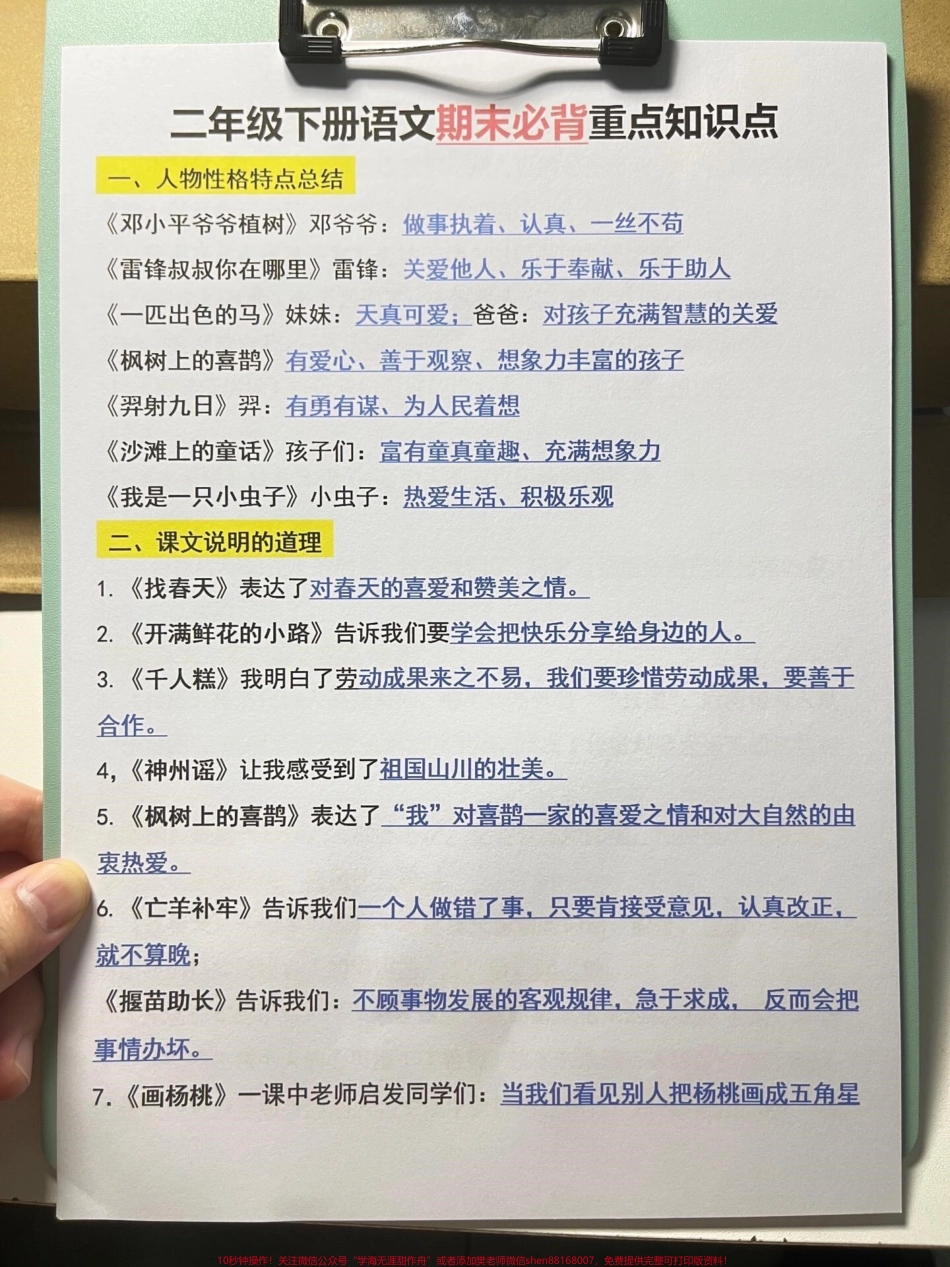 二年级下册语文期末必背重点知识点
一、人物性格特点总结
《邓小平爷爷植树》邓爷爷：做事执着、认真、一丝不苟
《雷锋叔叔你在哪里》雷锋：关爱他人、乐于奉献、乐于助人
《一匹出色的马》妹妹：天真可爱；爸爸：对孩子充满智慧的关爱
《枫树上的喜鹊》有爱心、善于观察、想象力丰富的孩子
《羿射九日》羿：有勇有谋、为人民着想
《沙滩上的童话》孩子们：富有童真童趣、充满想象力
《我是一只小虫子》小虫子：热爱生活、积极乐观
二、课文说明的道理
1.《找春天》表达了对春天的喜爱和赞美之情。
2.《开满鲜花的小路》告诉我们要学会把快乐分享给身边的人。
3.《千人糕》我明白了劳动成果来之不易，我们要珍惜劳动成果，要善于
合作。
4,《神州谣》让我感受到了祖国山川的壮美。
5.《枫树上的喜鹊》表达了“我”对喜鹊一家的喜爱之情和对大自然的由
衷热爱。
6.《亡羊补牢》告诉我们一个人做错了事，只要肯接受意见，认真改正，
就不算晚；
《揠苗助长》告诉我们：不顾事物发展的客观规律，急于求成， 反而会把
事情办坏。
7.《画杨桃》一课中老师启发同学们：当我们看见别人把杨桃画成五角星
10秒钟操作！关注微信公众号“学海无涯甜作舟”或者添加樊老师微信shen88168007，免费提供完整可打印版资料！